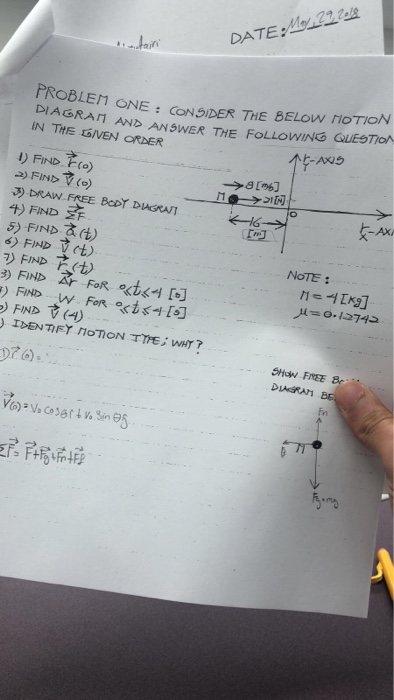 DATE: May, 29, 2018
PROBLEM ONE : CONSIDER THE BELOW MOTION
DIAGRAM AND ANSWER THE FOLLOWING QUESTION
IN THE GIVEN ORDER
1) FIND r(0)
2) FIND V(0)
3) DRAW FREE BODY DIAGRAM
4) FIND ΣF
5) FIND a(t)
6) FIND V(t)
7) FIND r(t)
3) FIND Δr FOR 0≤t≤4 [s]
) FIND W FOR 0≤t≤4 [s]
) FIND V(4)
) IDENTIFY MOTION TYPE; WHY?
r-AXIS
Y
8 [m/s]
M
21[N]
16
[m]
O
r-AXI
X
NOTE :
M = 4 [kg]
μ = 0.12742
SHOW FREE B
DIAGRAM BE
1) r(0) =
V(0) = V₀ cosθî + V₀ sinθĵ
ΣF = F+Fg+Fn+Ff
Fn
M
Fg=mg